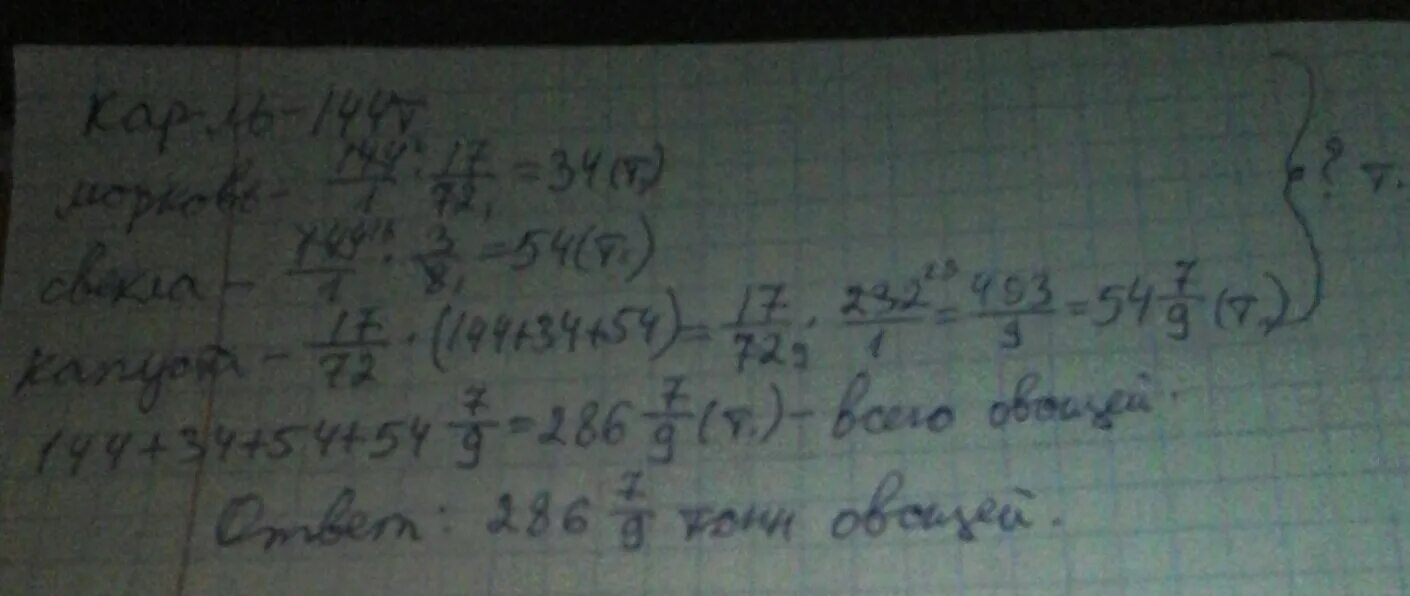 Кар-ль - 144т
морковь - 144²/1 · 17/72₁ = 34(т.)
свекла - 144¹⁸/1 · 3/8₁ = 54(т.)
капуста - 17/72 · (144+34+54) = 17/72₉ · 232²⁹/1 = 493/9 = 54 7/9 (т.)
? т.
144+34+54+54 7/9 = 286 7/9 (т.) - всего овощей.
Ответ: 286 7/9 тонн овощей.